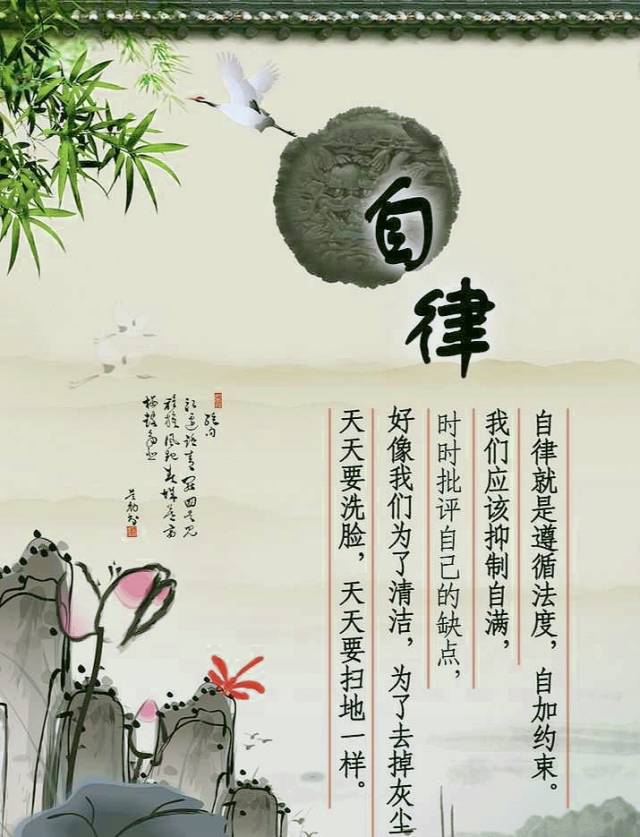 自律
自律就是遵循法度，自加约束。
我们应该抑制自满，
时时批评自己的缺点，
好像我们为了清洁，为了去掉灰尘
天天要洗脸，天天要扫地一样。